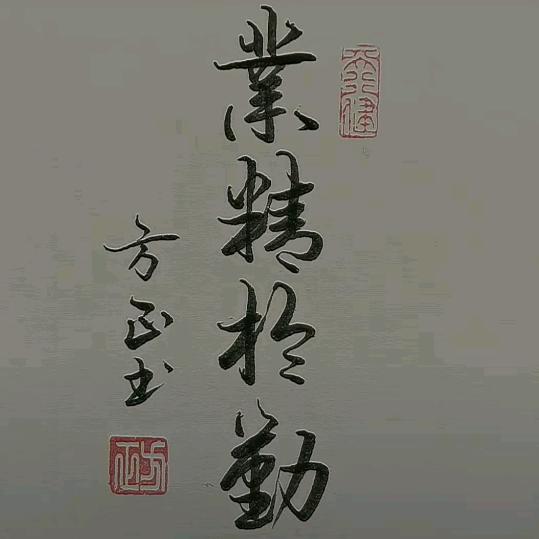 業精於勤
方正书